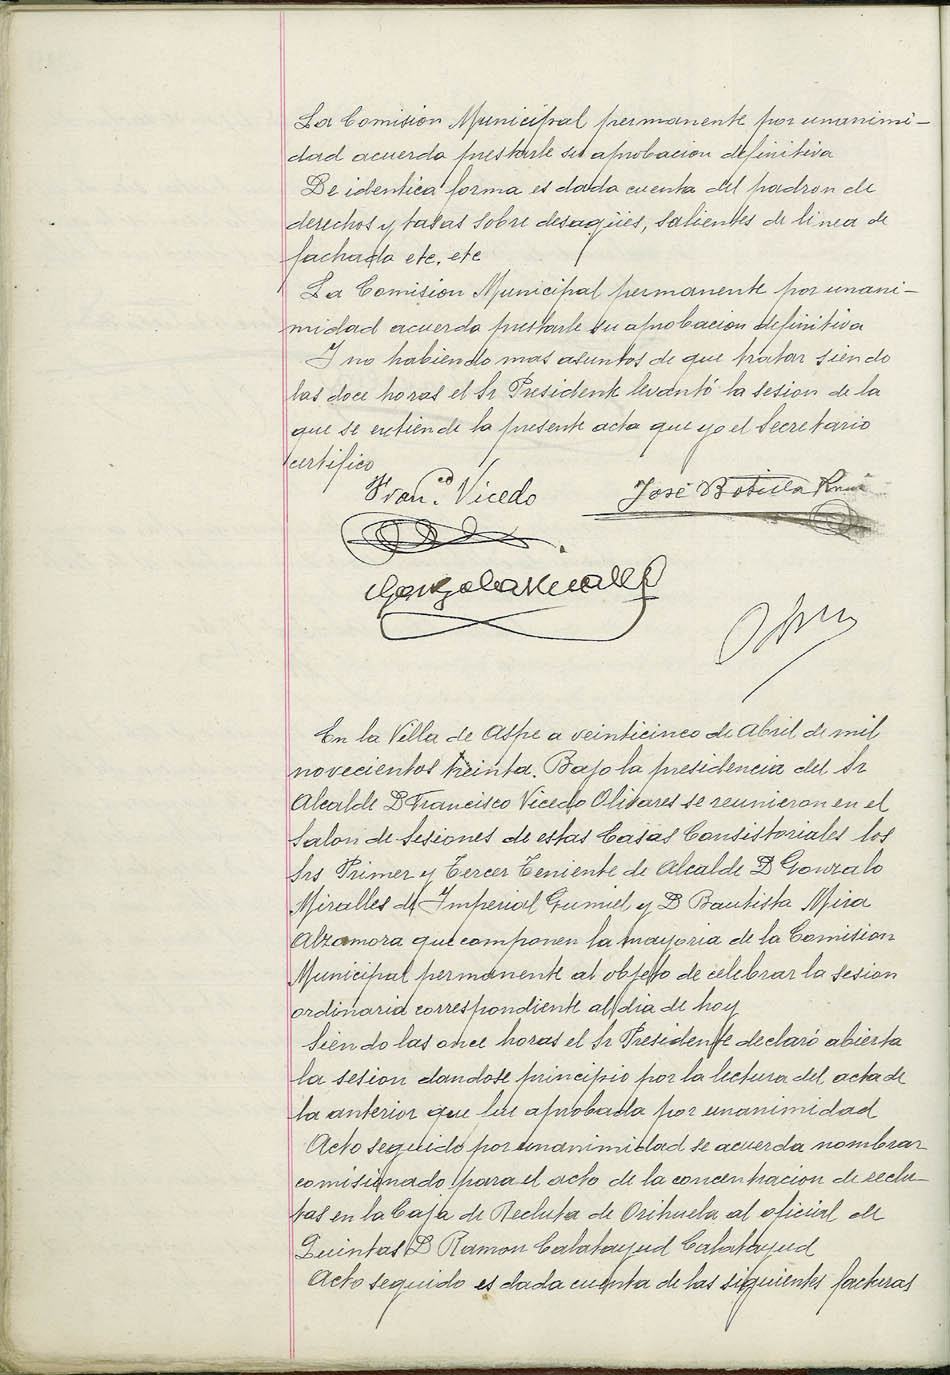 La Comision Municipal permanente por unanimi-
dad acuerda prestarle su aprobacion definitiva
De identica forma es dada cuenta del padron de
derechos y tasas sobre desagües, salientes de linea de
fachada etc. etc
La Comision Municipal permanente por unani-
midad acuerda prestarle su aprobacion definitiva
Y no habiendo mas asuntos de que tratar siendo
las doce horas el Sr Presidente levantó la sesion de la
que se extiende la presente acta que yo el Secretario
certifico
Fran.co Vicedo
José Botella
Gonzalo Miralles
En la Villa de Aspe a veinticinco de Abril de mil
novecientos treinta. Bajo la presidencia del Sr
Alcalde D Francisco Vicedo Olivares se reunieron en el
Salon de Sesiones de estas Casas Consistoriales los
Srs Primer y Tercer Teniente de Alcalde D Gonzalo
Miralles de Imperial Gumiel y D Bautista Mira
Alzamora que componen la mayoria de la Comision
Municipal permanente al objeto de celebrar la sesion
ordinaria correspondiente al dia de hoy
Siendo las once horas el Sr Presidente declaró abierta
la sesion dandose principio por la lectura del acta de
la anterior que fue aprobada por unanimidad
Acto seguido por unanimidad se acuerda nombrar
comisionado para el acto de la concentracion de reclu-
tas en la Caja de Recluta de Orihuela al oficial de
Quintas D Ramon Calatayud Calatayud
Acto seguido es dada cuenta de las siguientes facturas